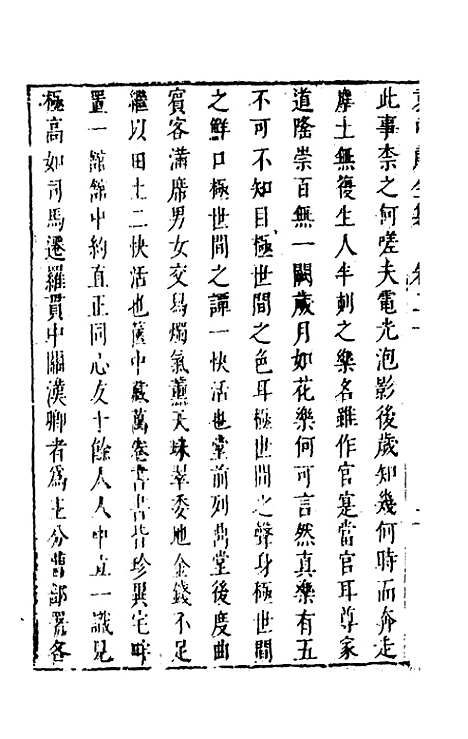 此事柰之何嗟夫電光泡影後歲知幾何時而奔走
塵土無復生人半刻之樂名雖作官寔當官耳尊家
道隆崇百無一闕歲月如花樂何可言然真樂有五
不可不知目極世間之色耳極世間之聲身極世間
之鮮口極世間之譚一快活也堂前列鼎堂後度曲
賓客滿席男女交舄燭氣薰天珠翠委地金錢不足
繼以田土二快活也篋中藏萬卷書書皆珍異宅畔
置一館館中約真正同心友十餘人人中立一識見
極高如司馬遷羅貫中關漢卿者爲主分曹部署各